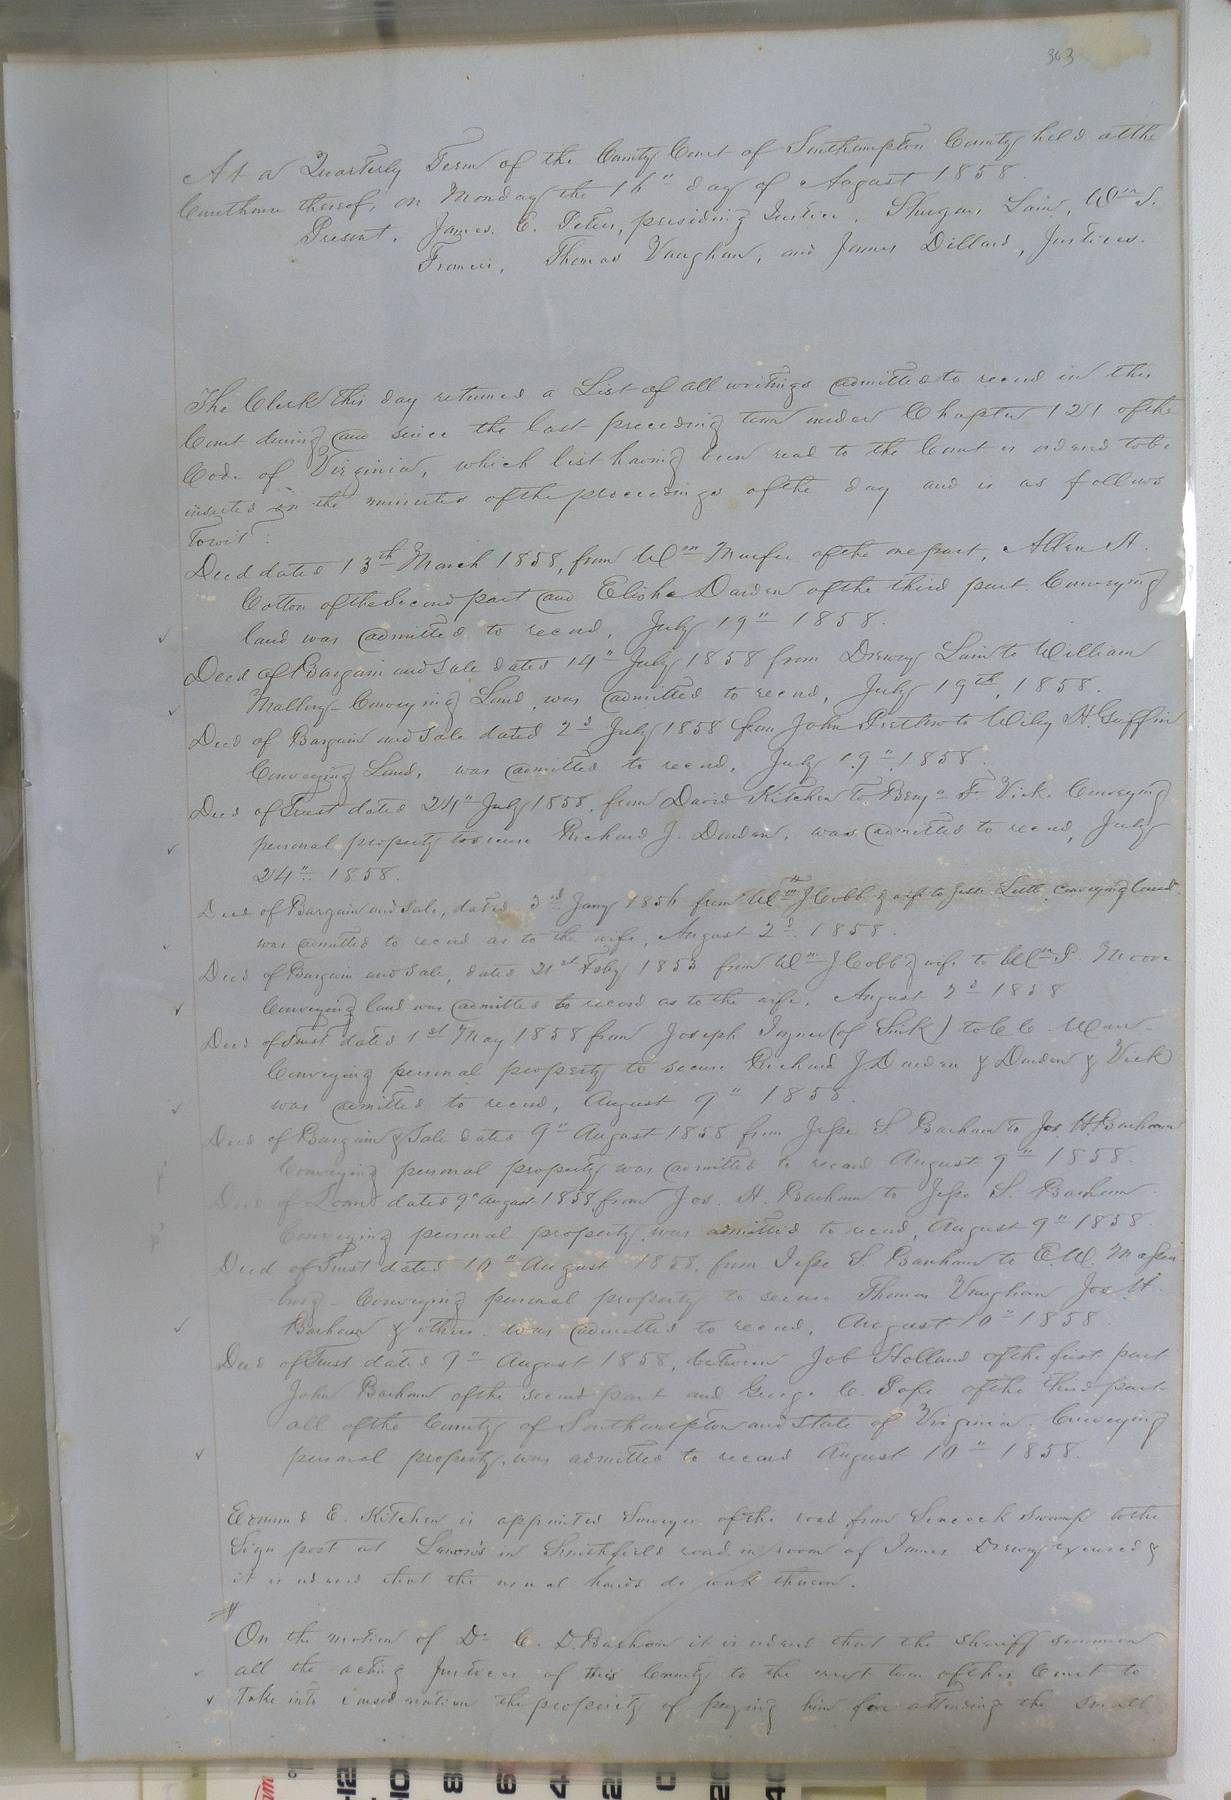 363
At a Quarterly Term of the County Court of Southampton County held at the
Courthouse thereof, on Monday the 16" day of August 1858.
Present, James E. Peters, presiding Justice, Sturgeon Lain, Wm S.
Francis, Thomas Vaughan, and James Dillard, Justices.
The Clerk this day returned a List of all writings admitted to record in this
Court during and since the last preceding term under Chapter 121 of the
Code of Virginia, which list having been read to the Court is ordered to be
inserted in the minutes of the proceedings of the day and is as follows
towit:
Deed dated 13th March 1858, from Wm Murfee of the one part, Allen H.
Cotton of the Second part and Elisha Darden of the third part Conveying
land was admitted to record, July 19" 1858.
Deed of Bargain and Sale dated 14" July 1858 from Drewry Lain to William
Mallory Conveying Land, was admitted to record, July 19th, 1858.
Deed of Bargain and Sale dated 2d July 1858 from John to Wiley H. Griffin
Conveying Land, was admitted to record, July 19" 1858.
Deed of Trust dated 24" July 1858, from David Kitchen to Benja F. Vick. Conveying
personal property to secure Richard J. Darden, was admitted to record, July
24" 1858.
Deed of Bargain and Sale, dated 3rd Jany 1856 from Wm J Cobb & wife to Jesse Little, conveying land
was admitted to record as to the wife, August 2d 1858.
Deed of Bargain and Sale, dated 21st Feby 1853 from Wm J Cobb & wife to Wm P. Moore
Conveying land was admitted to record as to the wife, August 2d 1858
Deed of Trust dated 1st May 1858 from Joseph Joyner (of Sml) to C. C.
Conveying personal property to secure Richard J. Darden & Darden & Vick
was admitted to record, August 9" 1858.
Deed of Bargain & Sale dated 9" August 1858 from Jesse S. Barham to Jos. H. Barham
Conveying personal property was admitted to record August 9" 1858.
Deed of Loan dated 9" August 1858, from Jos. H. Barham to Jesse S. Barham
Conveying personal property, was admitted to record, August 9" 1858.
Deed of Trust dated 10" August 1858, from Jesse S. Barham to E. W. Massen
burg Conveying personal property to secure Thomas Vaughan Jos H.
Barham & others. was admitted to record, August 10" 1858.
Deed of Trust dated 9" August 1858, between Job Holland of the first part
John Barham of the second part and George C. Pope of the third part
all of the County of Southampton and State of Virginia. Conveying
personal property, was admitted to record August 10" 1858.
Edmund E. Kitchen is appointed Surveyor of the road from Seacock Swamp to the
Sign post at in Smithfield road in room of James Drewry excused &
it is ordered that the usual hands do work thereon.
On the motion of Dr C. D. Barham it is ordered that the Sheriff summon
all the acting Justices of this County to the next term of this Court to
take into consideration the propriety of paying him for attending the small